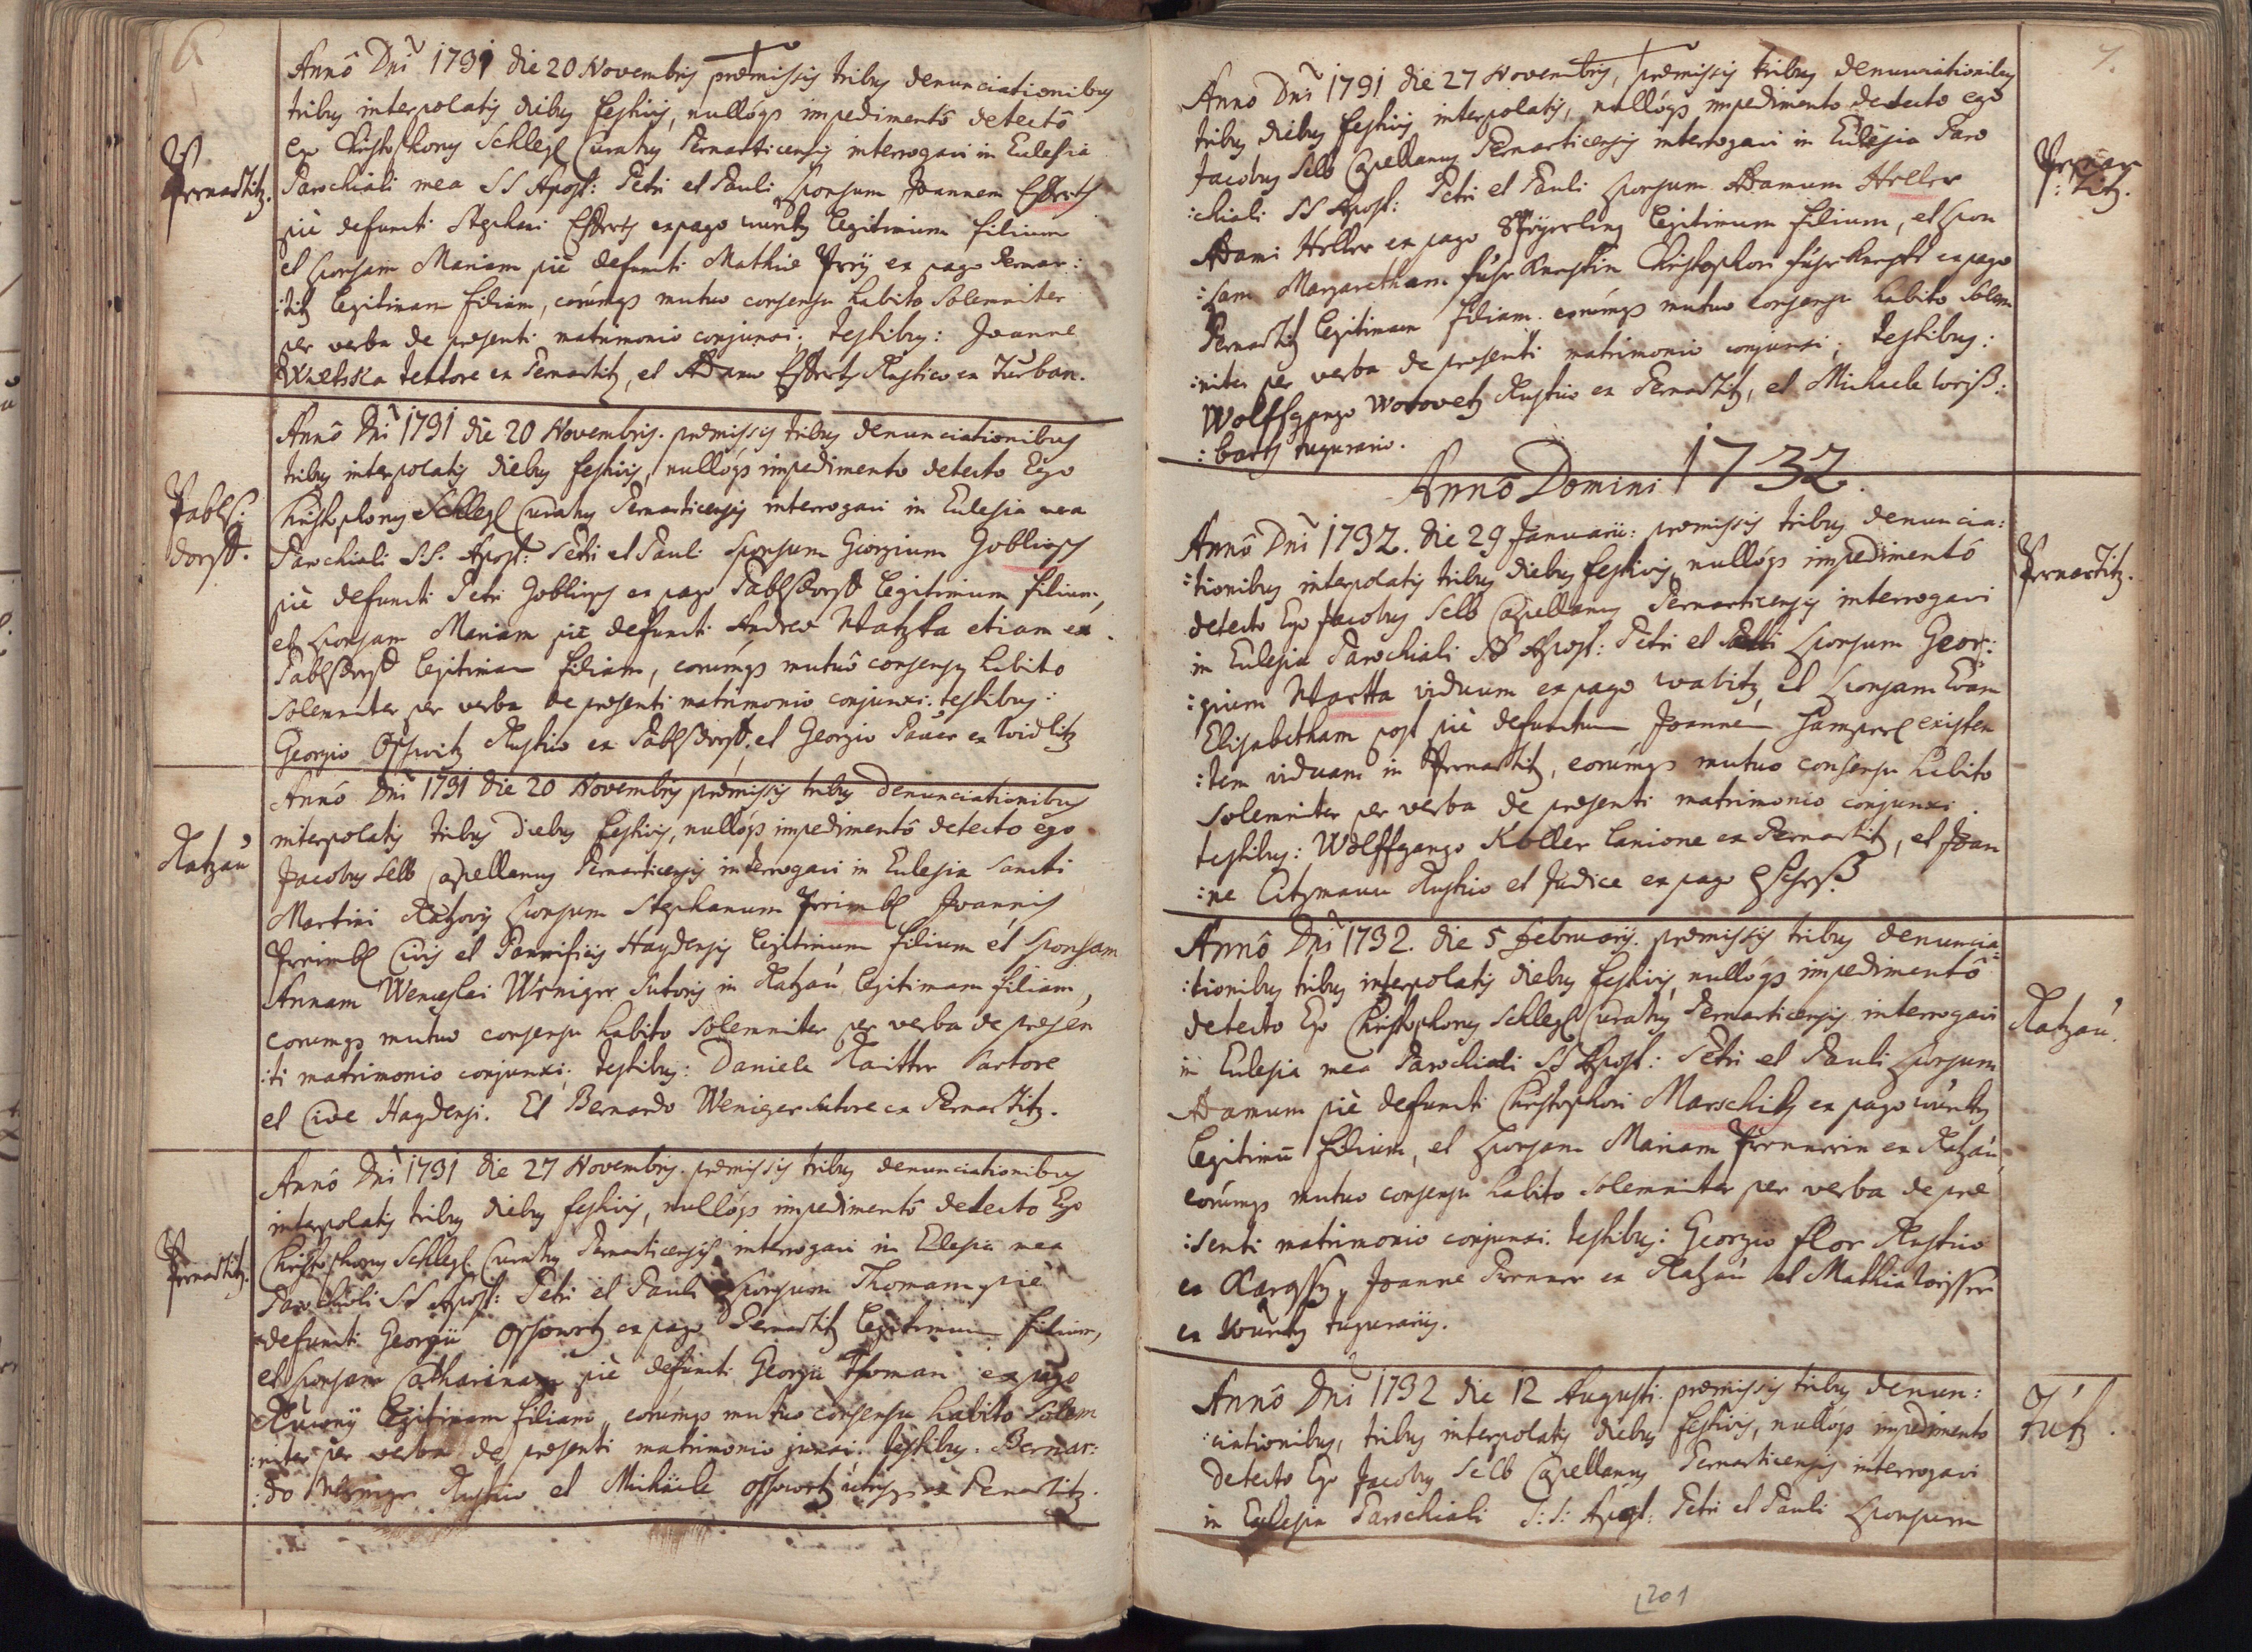 6
Annô Dni 1731 die 20 Novembris præmissis tribus denunciationibus
tribus interpolatis diebus festivis, nullóq3 impedimentô detectô
Christophorus Schlegl Curatus Pernarticensis interrogavi in Eulesia
Pernartitz.
Parochiali mea SS Apost: Petri et Pauli sponsum Joannem
piè defuncti Stephani ex pago legitimum filium
et sponsam Mariam piè defuncti Mathiæ ex pago Pernar:
:titz legitimam filiam, eorúmq3 mutuo consensu habito Solemniter
per verba de presenti matrimonio conjunxi; testibus: Joanne
textore ex Pernartitz, et Adamo Rustico ex Turban.
Annô Dni 1731 die 20 Novembris. præmissis tribus denunciationibus
tribus interpolatis diebus festivis, nullóq3 impedimento detecto Ego
Pabls:
dorff.
Christophorus Schlegl Curatus Pernarticensis interrogavi in Eulesia mea
Parochiali S.S. Apost: Petri et Pauli sponsum Giorgium
piè defuncti Petri ex pago Pablsdorff legitimum filium,
et sponsam Mariam piè defuncti Andreæ Watzka etiam ex
Pablsdorff legitimam filiam, eorúmq3 mutuô consensu habito
Solemniter per verba de presenti matrimonio conjunxi. testibus:
Georgio Rustico ex Pablsdorff, et Georgio Pauer ex Widlitz
Annô Dni 1731 die 20 Novembris præmissis tribus denunciationibus
interpolatis tribus diebus festivis, nullóq3 impedimentô detecto ego
Ratzaú
Jacobus Selb Capellanus Pernarticensis interrogavi in Eulesia Sancti
Martini sponsum Stephanum Joannis
Civis et Pannificis Haydensis legitimum filium et sponsam
Annam Wenceslai Weniger Sutoris in Ratzaú legitimam filiam,
eorumq3 mutuo consensu habito solemniter per verba de presen
:ti matrimonio conjunxi; testibus: Daniele Raitter Sartore
et Cive Haydensi. Et Bernardo Weniger Sutore ex Pernartitz.
Annô Dni 1731 die 27 Novembris. præmissis tribus denunciationibus
interpolatis tribus diebus festivis, nullóq3 impedimentô detecto Ego
Pernartitz.
Christophorus Schlegl Curatus Pernarticensis interrogavi in Elesia mea
Parochiali SS Apost: Petri et Pauli sponsum Thomam piè
defuncti Georgii ex pago Pernartitz legitimum filium,
et sponsam Catharinam piè defuncti Georgii Thoman ex pago
legitimam filiam, eorúmq3 mutuo consensu habito Solem
:niter per verba de presenti matrimonio junxi: testibus: Bernar:
:do Weniger Rustico et Michaele utrisq3 ex Pernartitz.
7.
Anno Dni 1731 die 27 Novembris, præmissis tribus denunciationibus
tribus diebus festivis interpolatis, nullóq3 impedimento detecto ego
Jacobus Selb Capellanus Pernarticensis interrogavi in Eulesia Paro
Pernar
:titz.
:chiali SS Apost: Petri et Pauli sponsum Adamum Heller
Adami Heller ex pago legitimum filium, et spon
:sam Margaretham Christophori ex pago
Pernartitz legitimam filiam. eorúmq3 mutuo consensu habito Solem
:niter per verba de presenti matrimonio conjunxi; testibus:
Wolffgango Worovetz Rustico ex Pernartitz, et Michaele
tugurario.
Annô Domini 1732.
Annô Dni 1732. die 29 Januarii: præmissis tribus denuncia:
:tionibus interpolatis tribus diebus festivis, nullóq3 impedimentô
Pernartitz.
detecto Ego Jacobus Selb Capellanus Pernarticensis interrogavi
in Eulesia Parochiali SS Apost: Petri et Pauli sponsum Geor:
:gium Wartta viduum ex pago Wabitz, et sponsam Evam
Elisabetham post piè defunctum Joannem Gamperl existen
:tem viduam in Pernartitz, eorúmq3 mutuo consensu habito
solemniter per verba de presenti matrimonio conjunxi.
testibus: Wolffgango Koller Lanione ex Pernartitz, et Joan
:ne Citzmann Rustico et Judice ex pago
Annô Dni 1732. die 5 Februarij. præmissis tribus denuncia:
:tionibus tribus interpolatis diebus festivis, nullóq3 impedimentô
Ratzaú.
detecto Ego Christophorus Schlegl Curatus Pernarticensis interrogavi
in Eulesia mea Parochiali SS Apost: Petri et Pauli sponsum
Adamum piè defuncti Christophori Marschik ex pago
legitimu filium, et sponsam Mariam ex Ratzaú,
eorúmq3 mutuo consensu habito Solemniter per verba de pre
:senti matrimonio conjunxi. testibus: Georgio Flor Rustico
ex Joanne ex Ratzaú et Mathia
ex tugurariis.
Annô Dni 1732 die 12 Augusti. præmissis tribus denun:
:ciationibus, tribus interpolatis diebus festivis, nullóq3 impedimento
detecto Ego Jacobus Selb Capellanus Pernarticensis interrogavi
in Eulesia Parochiali S:S: Apost: Petri et Pauli sponsum
201